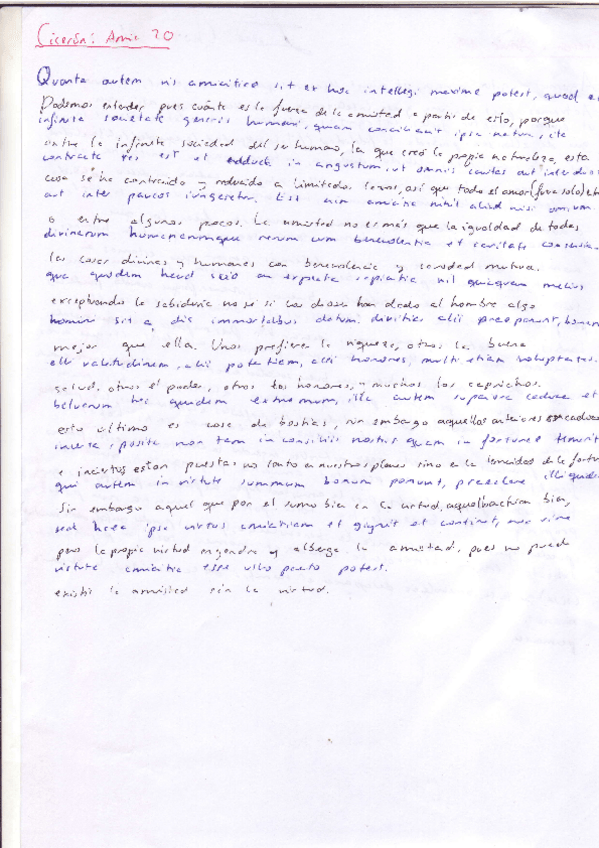 Cicerón: Amic 20
Quanta autem vis amicitiae sit ex hoc intellegi maxime potest, quod e
Podemos entender pues cuánta es la fuerza de la amistad a partir de esto, porque
infinita societate generis humani, quam conciliavit ipsa natura, ita
entre la infinita sociedad del ser humano, la que creó la propia naturaleza, esta
contracta res est et adducta in angustum, ut omnis caritas aut inter duos
cosa se ha contraido y reducido a limitados lazos, así que todo el amor (fuera solo) entr
aut inter paucos iungeretur. Est enim amicitia nihil aliud nisi omnium
o entre algunos pocos. La amistad no es más que la igualdad de todas
divinarum humanarumque rerum cum benevolentia et caritate consensio.
las cosas divinas y humanas con benevolencia y caridad mutua.
qua quidem haud scio an excepta sapientia nil quicquam melius
exceptuando la sabiduría no sé si los dioses han dado al hombre algo
homini sit a dis immortalibus datum. divitias alii praeponunt, bonam
mejor que ella. Unos prefieren la riqueza, otros la buena
alii valetudinem, alii potentiam, alii honores, multi etiam voluptates.
salud, otros el poder, otros los honores, y muchos los caprichos.
beluarum hoc quidem extremum, illa autem superiora caduca et
esto último es cosa de bestias, sin embargo aquellos anteriores son caducos
incerta, posita non tam in consiliis nostris quam in fortunae temerit
e inciertos estan puestas no tanto en nuestros planes sino en la temeridad de la fortu
qui autem in virtute summum bonum ponunt, praeclare illi quide
Sin embargo aquel que pon el sumo bien en la virtud, aquel actuan bien,
sed haec ipsa virtus amicitiam et gignit et continet, nec sine
pero la propia virtud engendra y alberga la amistad, pues no puede
virtute amicitia esse ullo pacto potest.
existir la amistad sin la virtud.